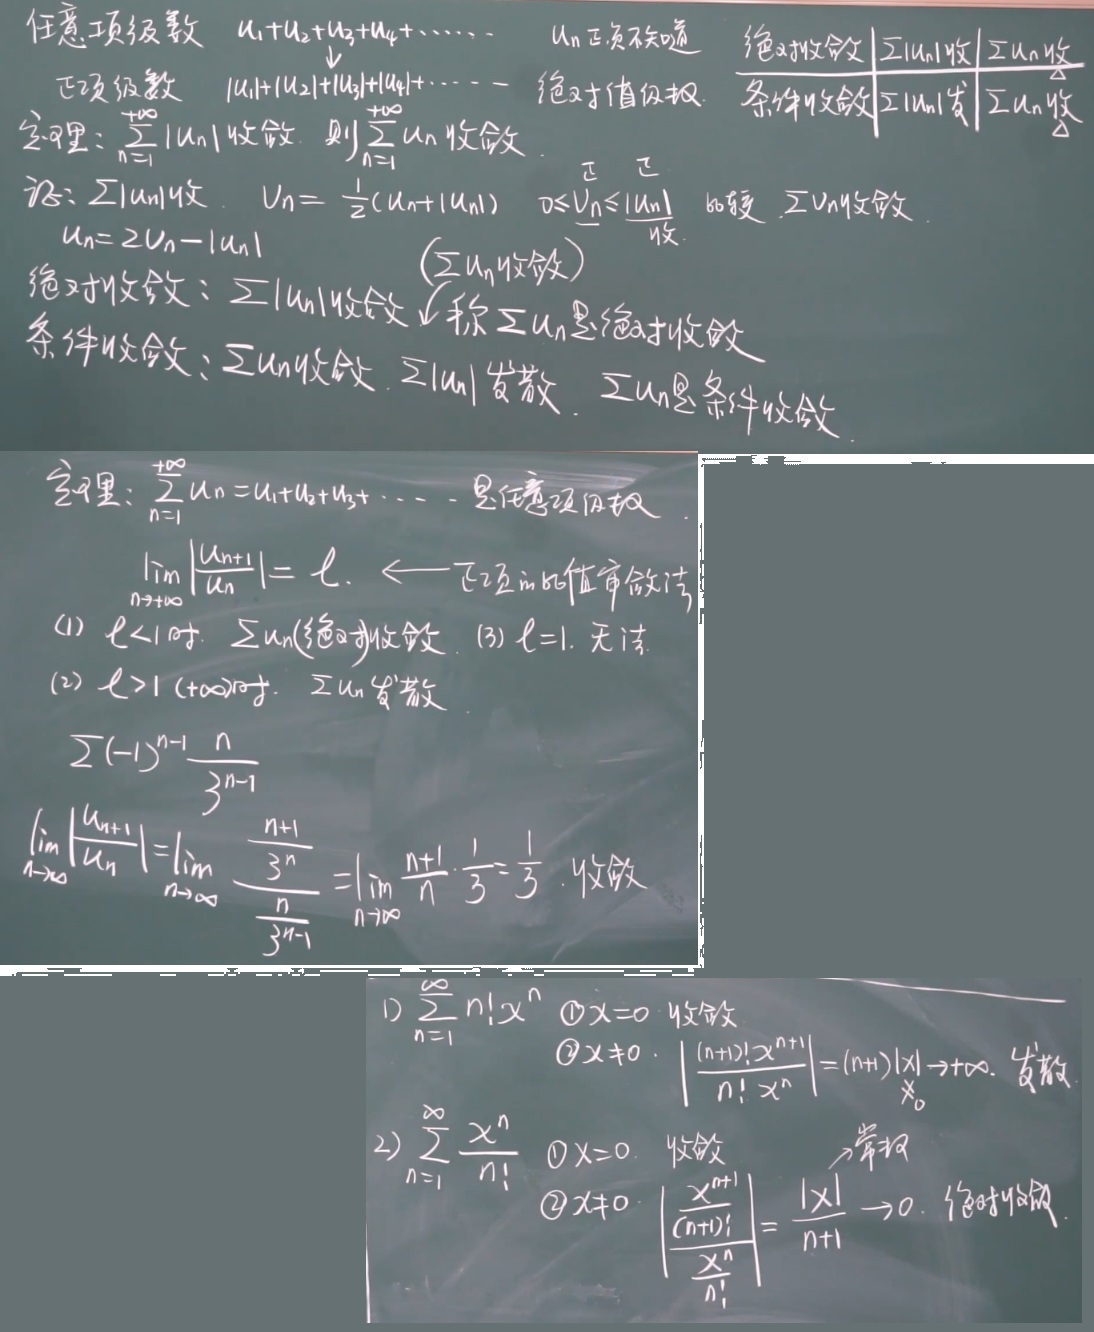 任意项级数 u₁+u₂+u₃+u₄+…… uₙ正负不知道
正项级数 |u₁|+|u₂|+|u₃|+|u₄|+…… 绝对值级数
绝对收敛 | Σ|uₙ|收 | Σuₙ收
条件收敛 | Σ|uₙ|发 | Σuₙ收
定理: Σ_{n=1}^{+∞}|uₙ|收敛. 则Σ_{n=1}^{+∞}uₙ收敛.
正 正
证: Σ|uₙ|收. Vₙ = 1/2(uₙ+|uₙ|) 0≤Vₙ≤|uₙ| 比较. ΣVₙ收敛.
收.
uₙ=2Vₙ-|uₙ|
(Σuₙ收敛)
绝对收敛: Σ|uₙ|收敛 ↙ 称Σuₙ是绝对收敛
条件收敛: Σuₙ收敛. Σ|uₙ|发散. Σuₙ是条件收敛.
定理: Σ_{n=1}^{+∞}uₙ=u₁+u₂+u₃+…… 是任意项级数.
lim_{n→+∞}|u_{n+1}/uₙ|=ℓ. ← 正项的比值审敛法
(1) ℓ<1时. Σuₙ(绝对)收敛. (3) ℓ=1. 无法
(2) ℓ>1 (+∞)时. Σuₙ发散
Σ(-1)^{n-1} n/3^{n-1}
lim_{n→∞}|u_{n+1}/uₙ|=lim_{n→∞} ((n+1)/3ⁿ)/(n/3^{n-1})=lim_{n→∞} (n+1)/n·1/3=1/3. 收敛
1) Σ_{n=1}^{∞} n!xⁿ ①x=0. 收敛
②x≠0. |(n+1)!x^{n+1}/(n!xⁿ)|=(n+1)|x|→+∞. 发散.
≠0
2) Σ_{n=1}^{∞} xⁿ/n! ①x=0. 收敛 ↗常数
②x≠0. |(x^{n+1}/(n+1)!)/(xⁿ/n!)|=|x|/(n+1)→0. 绝对收敛.